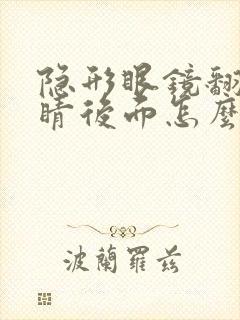 隐形眼镜翻
睛後面怎麼
波蘭羅茲